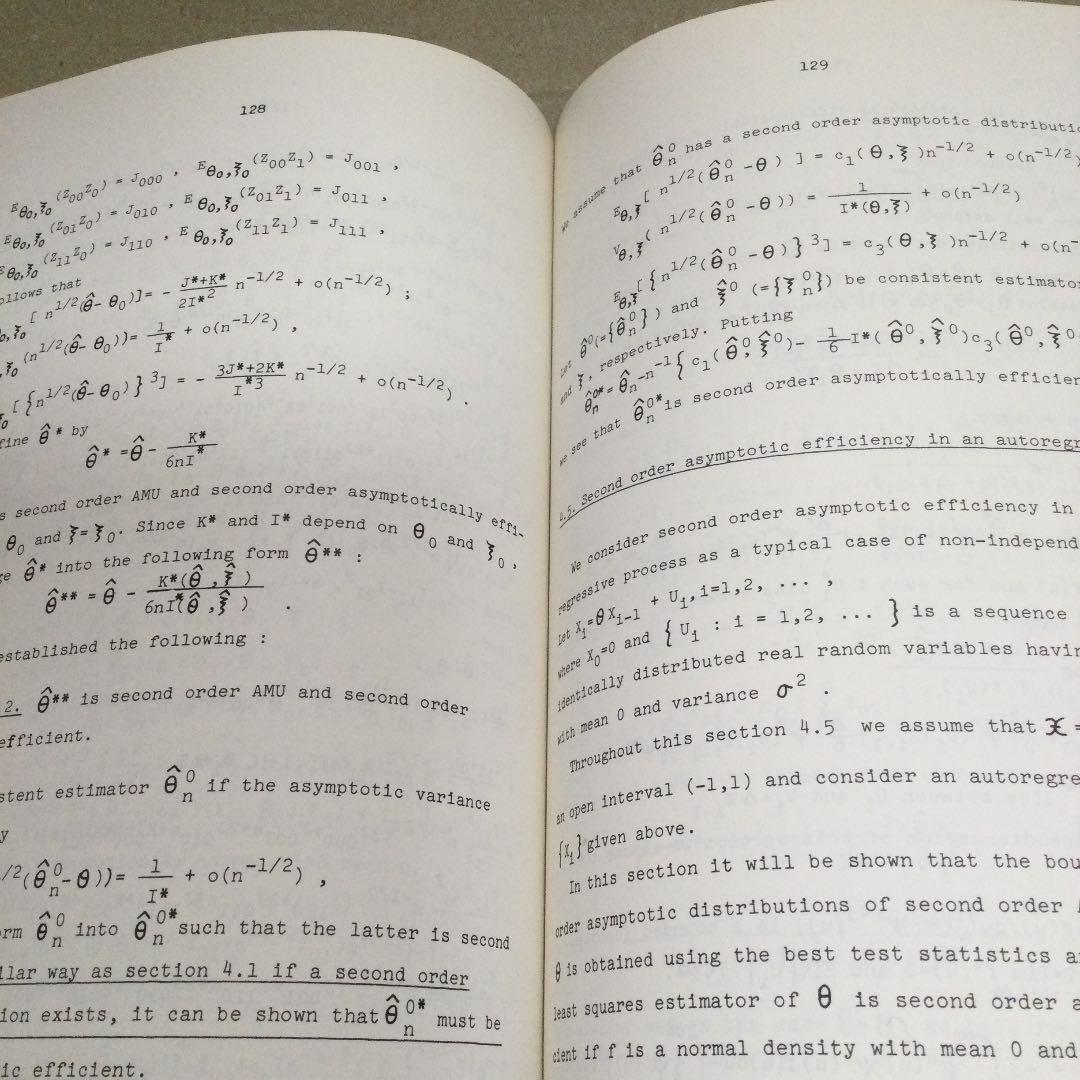 128
E_{θ₀,ξ₀}(Z₀₀Z₀) = J₀₀₀ , E_{θ₀,ξ₀}(Z₀₀Z₁) = J₀₀₁ ,
E_{θ₀,ξ₀}(Z₀₁Z₀) = J₀₁₀ , E_{θ₀,ξ₀}(Z₀₁Z₁) = J₀₁₁ ,
E_{θ₀,ξ₀}(Z₁₁Z₀) = J₁₁₀ , E_{θ₀,ξ₀}(Z₁₁Z₁) = J₁₁₁ ,
ollows that
[ n^{1/2}(θ̂ - θ₀)] = - (J*+K*)/(2I*²) n^{-1/2} + o(n^{-1/2}) ;
(n^{1/2}(θ̂ - θ₀)) = 1/I* + o(n^{-1/2}) ,
[ {n^{1/2}(θ̂ - θ₀)}³] = - (3J*+2K*)/I*³ n^{-1/2} + o(n^{-1/2}) .
fine θ̂* by
θ̂* = θ̂ - K*/(6nI*)
s second order AMU and second order asymptotically effi-
θ₀ and ξ=ξ₀. Since K* and I* depend on θ₀ and ξ₀ ,
ge θ̂* into the following form θ̂** :
θ̂** = θ̂ - K*(θ̂,ξ̂)/(6nI*(θ̂,ξ̂)) .
established the following :
2. θ̂** is second order AMU and second order
efficient.
stent estimator θ̂ₙ⁰ if the asymptotic variance
y
1/2(θ̂ₙ⁰ - θ)) = 1/I* + o(n^{-1/2}) ,
orm θ̂ₙ⁰ into θ̂ₙ⁰* such that the latter is second
ilar way as section 4.1 if a second order
ion exists, it can be shown that θ̂ₙ⁰* must be
ic efficient.
129
We assume that θ̂ₙ⁰ has a second order asymptotic distributi
E_{θ,ξ}[ n^{1/2}(θ̂ₙ⁰ - θ) ] = c₁(θ,ξ)n^{-1/2} + o(n^{-1/2})
V_{θ,ξ}( n^{1/2}(θ̂ₙ⁰ - θ)) = 1/I*(θ,ξ) + o(n^{-1/2})
E_{θ,ξ}[{n^{1/2}(θ̂ₙ⁰ - θ)}³] = c₃(θ,ξ)n^{-1/2} + o(n^{-
Let θ̂⁰(={θ̂ₙ⁰}) and ξ̂⁰ (={ξ̂ₙ⁰}) be consistent estimator
and ξ, respectively. Putting
θ̂ₙ⁰* = θ̂ₙ - n^{-1}{ c₁(θ̂⁰,ξ̂⁰) - 1/6 I*(θ̂⁰,ξ̂⁰)c₃(θ̂⁰,ξ̂⁰
we see that θ̂ₙ⁰* is second order asymptotically efficien
4.5. Second order asymptotic efficiency in an autoregr
We consider second order asymptotic efficiency in
regressive process as a typical case of non-independ
Let Xᵢ=θXᵢ₋₁ + Uᵢ,i=1,2, ... ,
where X₀=0 and {Uᵢ : i = 1,2, ... } is a sequence
identically distributed real random variables havin
with mean 0 and variance σ² .
Throughout this section 4.5 we assume that 𝔛 =
an open interval (-1,1) and consider an autoregre
{Xᵢ} given above.
In this section it will be shown that the bou
order asymptotic distributions of second order A
θ is obtained using the best test statistics a
least squares estimator of θ is second order a
cient if f is a normal density with mean 0 and